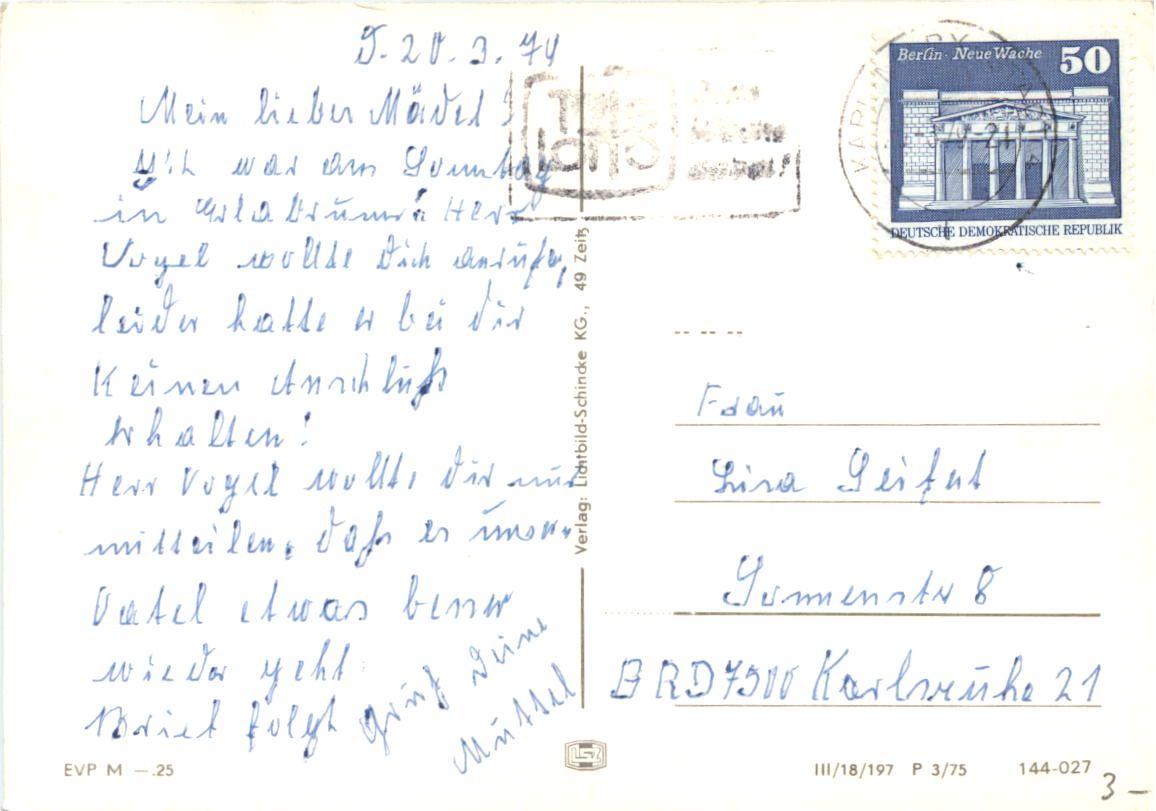 20.3.74
Mein liebes Mädel!
Ich war am Sonntag
in Erlabrunn! Herr
Vogel wollte Dich anrufen,
leider hatte er bei dir
keinen Anschluß
erhalten!
Herr Vogel wollte Dir nur
mitteilen, daß es unserm
Vatel etwas besser
wieder geht
Brief folgt Gruß Deine
Muttel
EVP M —.25
Verlag: Lichtbild-Schincke KG., 49 Zeitz
Berlin · Neue Wache 50
DEUTSCHE DEMOKRATISCHE REPUBLIK
Frau
Lisa Seifert
Sonnenstr 8
BRD 7500 Karlsruhe 21
III/18/197 P 3/75 144-027
3 –